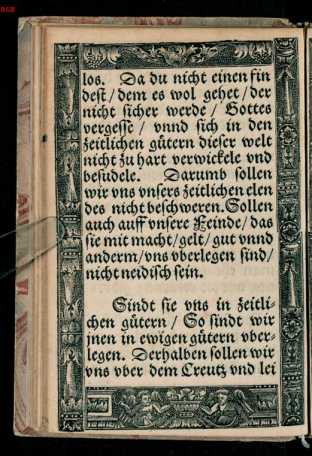 los. Da du nicht einen fin
dest / dem es wol gehet / der
nicht sicher werde / Gottes
vergesse / vnnd sich in den
zeitlichen gütern dieser welt
nicht zu hart verwickele vnd
besudele. Darumb sollen
wir vns vnsers zeitlichen elen
des nicht beschweren. Sollen
auch auff vnsere Feinde / das
sie mit macht / gelt / gut vnnd
anderm / vns vberlegen sind /
nicht neidisch sein.
Sindt sie vns in zeitli-
chen gütern / So sindt wir
jnen in ewigen gütern vber-
legen. Derhalben sollen wir
vns vber dem Creutz vnd lei